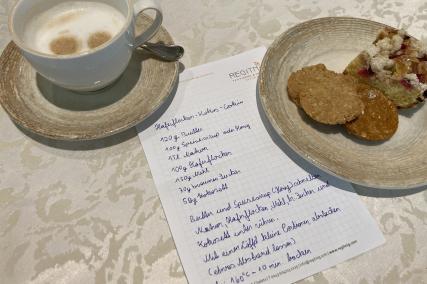 REGITNIG
Haferflocken-Kokos-Cookies
120g Butter
100g Speisesirup oder Honig
1 TL Natron
100g Haferflocken
150g Mehl
70g brauner Zucker
50g Kokosette
Butter und Speisesirup (Honig) schmelzen
Natron, Haferflocken, Mehl, br. Zucker und
Kokosette unter rühren.
Mit einem Löffel kleine Portionen abstechen
(etwas Abstand lassen)
bei 160°C ~ 10 min. backen
www.regitnig.com